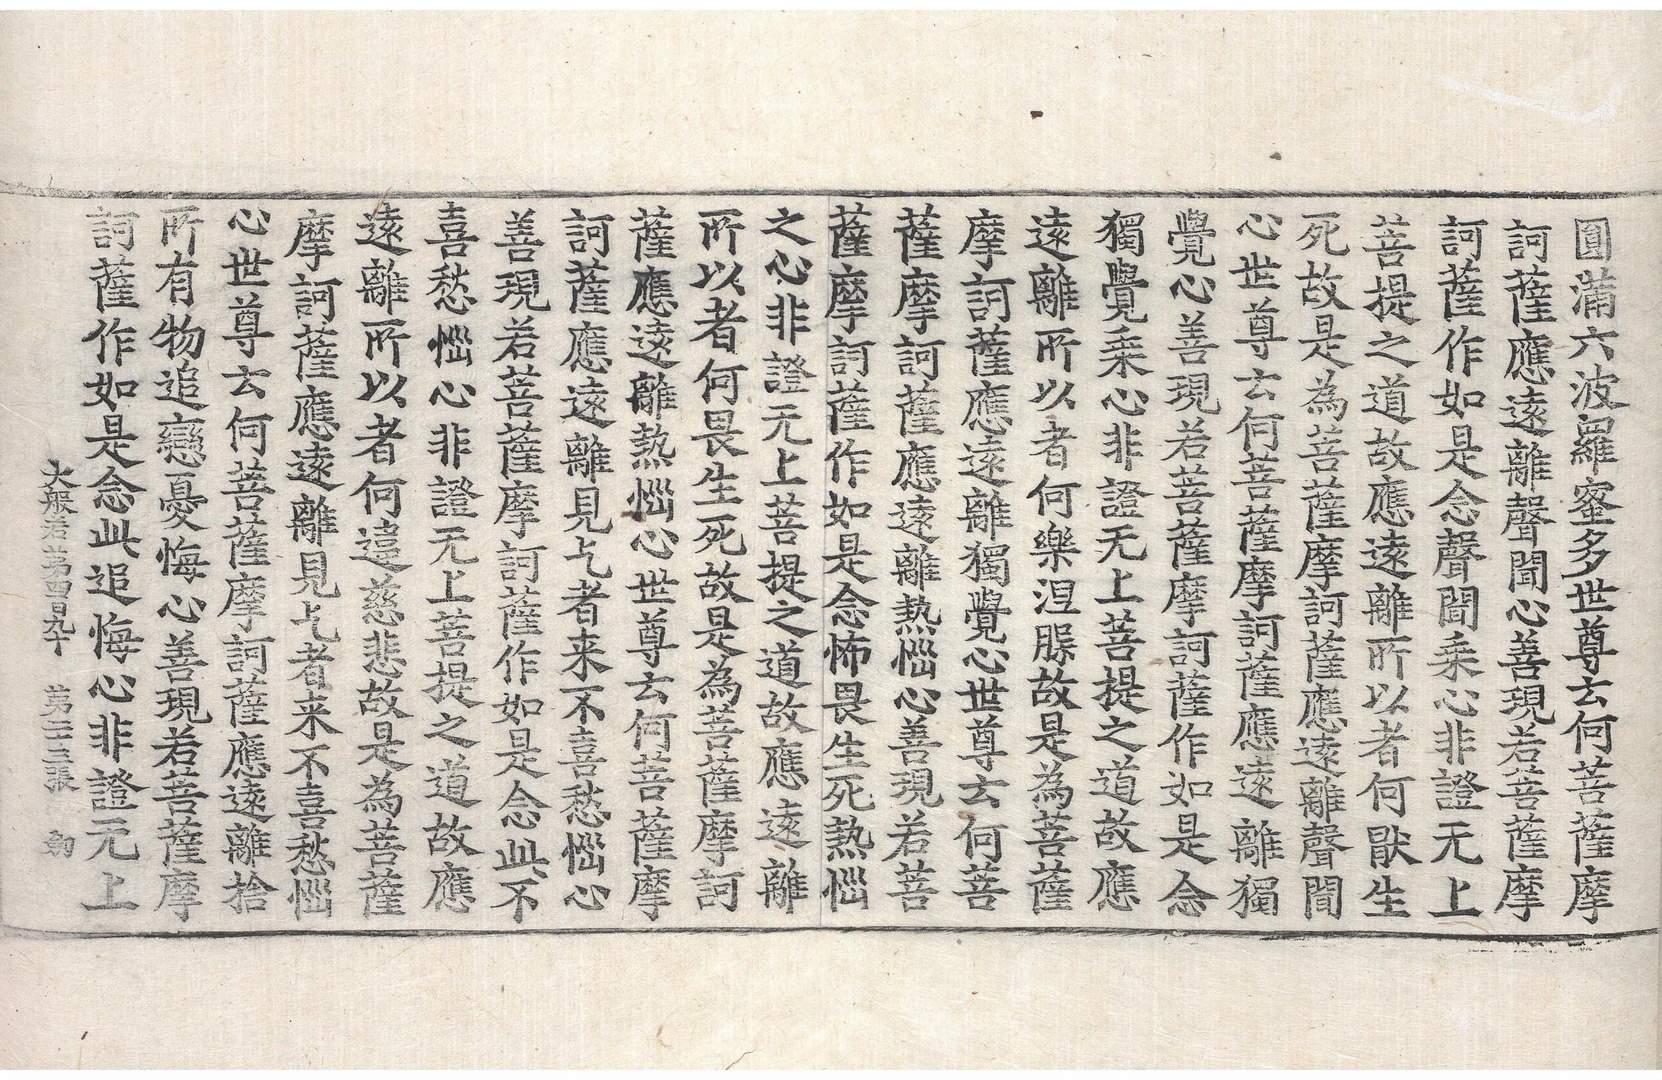 圓滿六波羅蜜多世尊云何菩薩摩
訶薩應遠離聲聞心善現若菩薩摩
訶薩作如是念聲聞乘心非證无上
菩提之道故應遠離所以者何猒生
死故是為菩薩摩訶薩應遠離聲聞
心世尊云何菩薩摩訶薩應遠離獨
覺心善現若菩薩摩訶薩作如是念
獨覺乘心非證无上菩提之道故應
遠離所以者何樂涅槃故是為菩薩
摩訶薩應遠離獨覺心世尊云何菩
薩摩訶薩應遠離熱惱心善現若菩
薩摩訶薩作如是念怖畏生死熱惱
之心非證无上菩提之道故應遠離
所以者何畏生死故是為菩薩摩訶
薩應遠離熱惱心世尊云何菩薩摩
訶薩應遠離見乞者来不喜愁惱心
善現若菩薩摩訶薩作如是念此不
喜愁惱心非證无上菩提之道故應
遠離所以者何違慈悲故是為菩薩
摩訶薩應遠離見乞者来不喜愁惱
心世尊云何菩薩摩訶薩應遠離捨
所有物追戀憂悔心善現若菩薩摩
訶薩作如是念此追悔心非證无上
大般若第四百九十 第二十三張